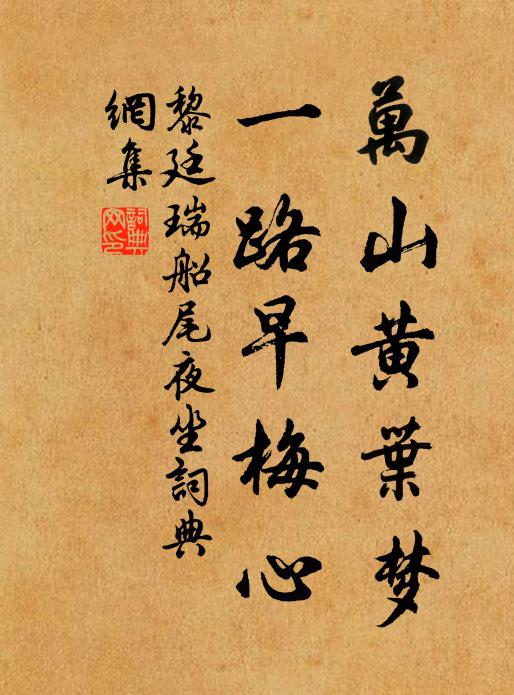 萬山黄葉梦
一路早梅心
黎廷瑞船尾夜坐詞典
網集
詞典
网印